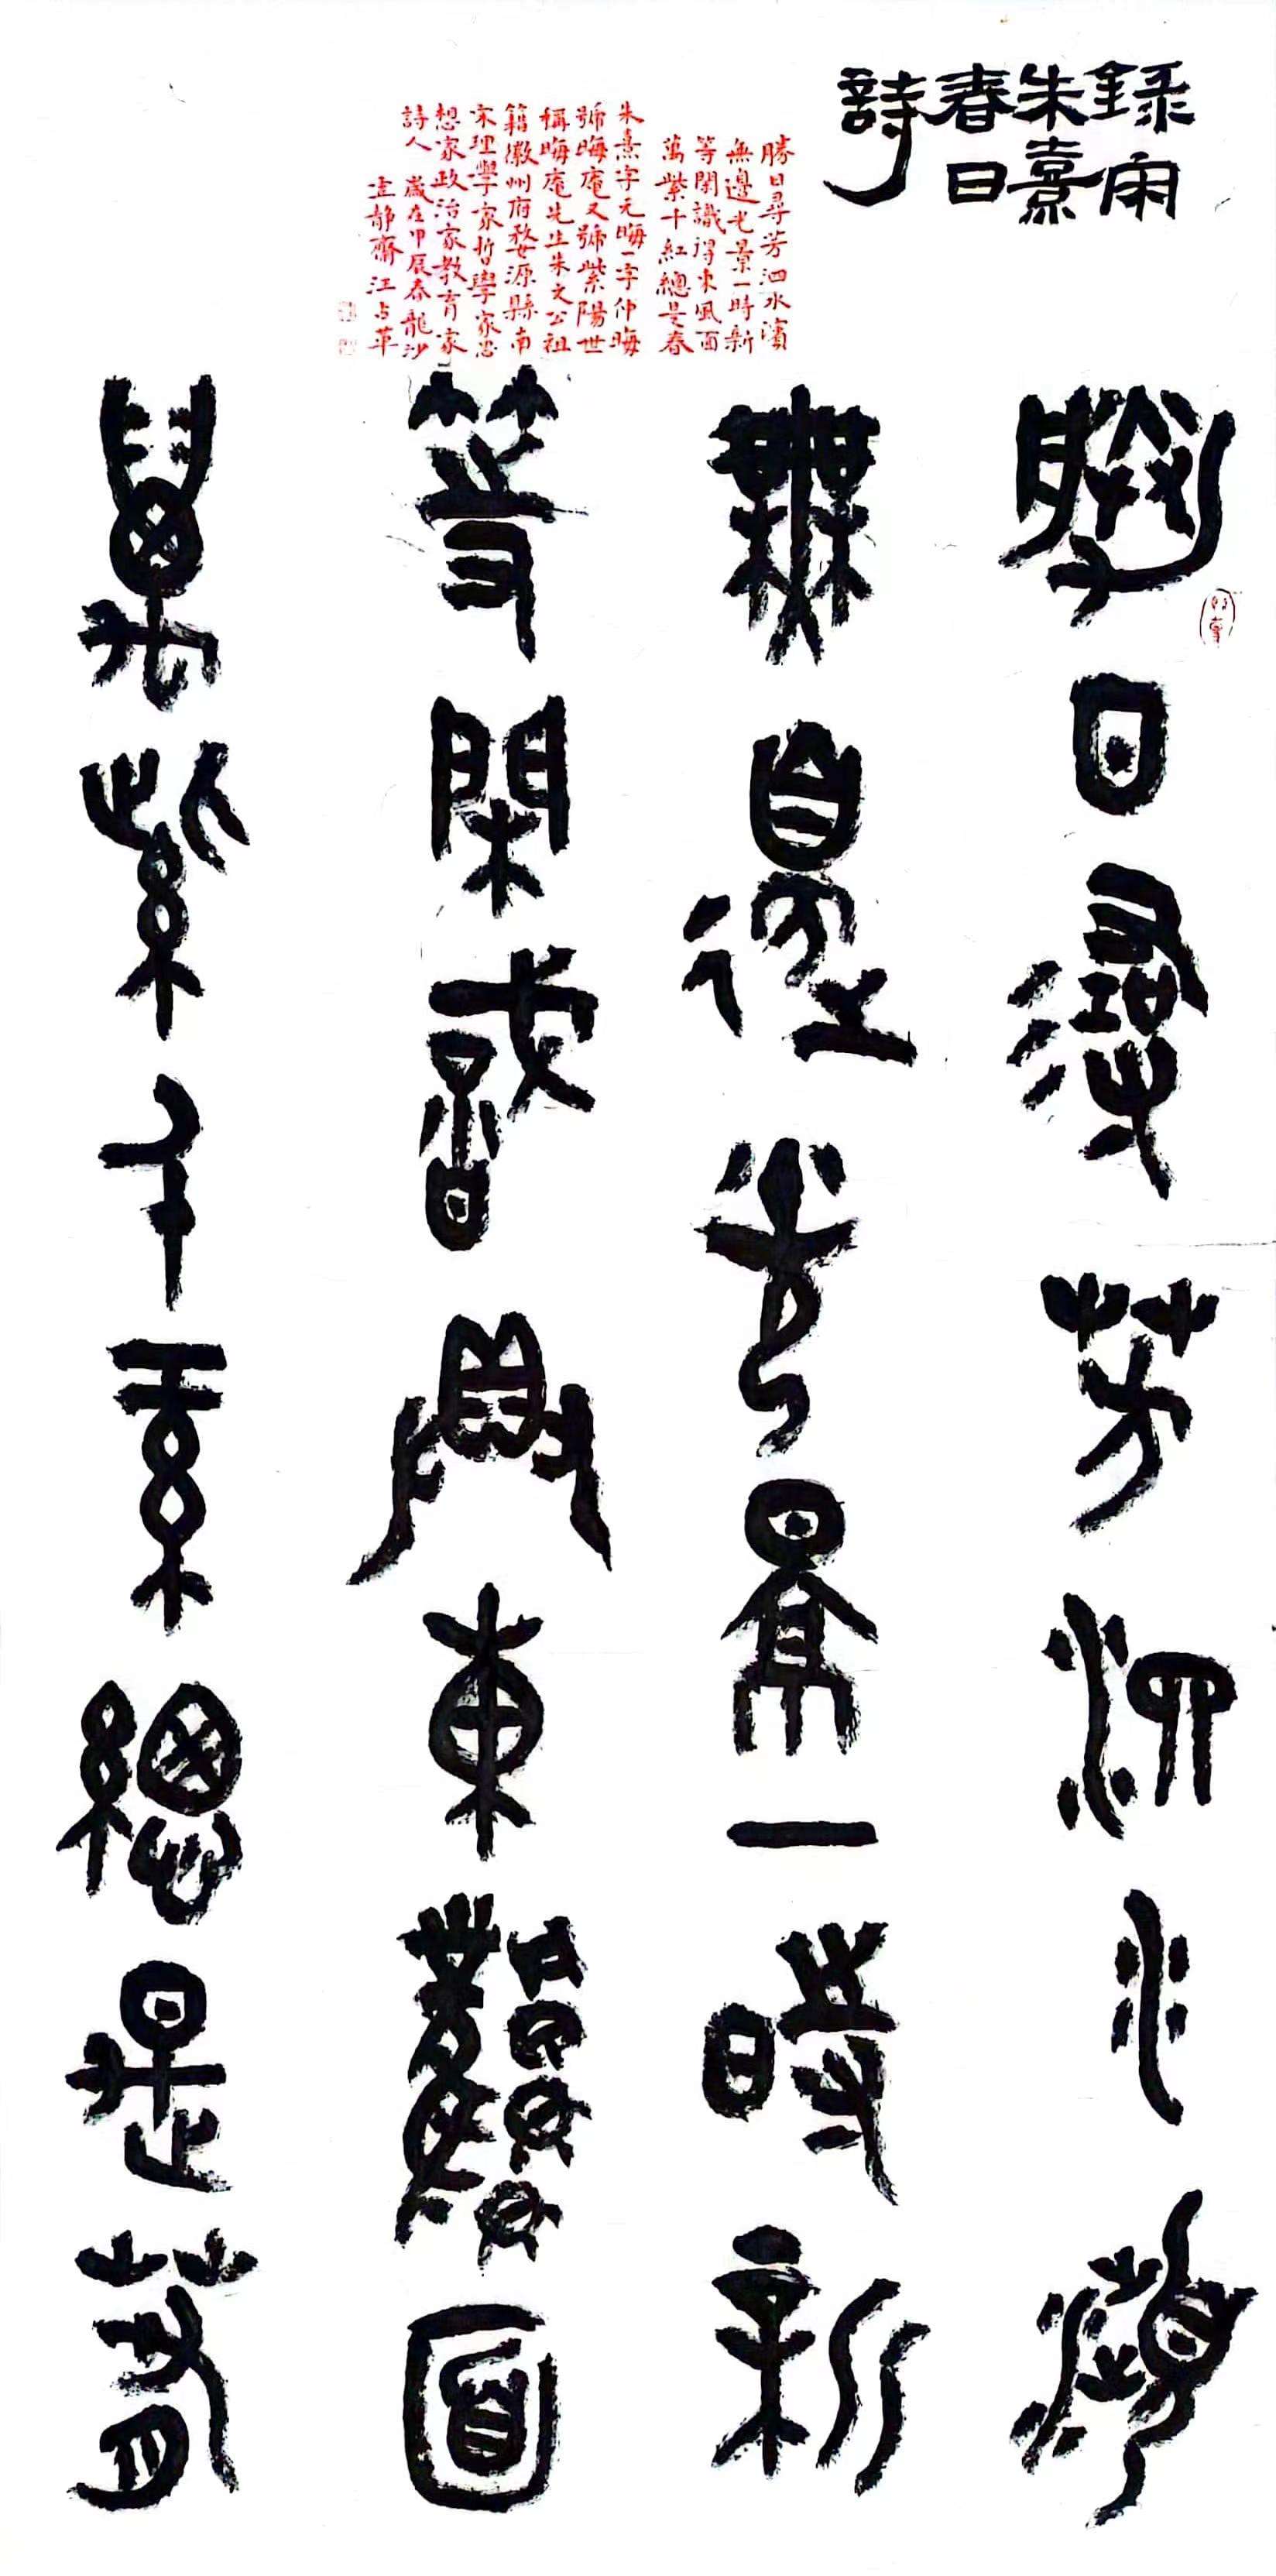 錄南
朱熹
春日
詩
勝日尋芳泗水濱
無邊光景一時新
等閑識得東風面
萬紫千紅總是春
朱熹字元晦一字仲晦
號晦庵又號紫陽世
稱晦庵先生朱文公祖
籍徽州府婺源縣南
宋理學家哲學家思
想家政治家教育家
詩人 歲在甲辰春龍沙
靜齋江占革
勝日尋芳泗水濱
無邊光景一時新
等閑識得東風面
萬紫千紅總是春